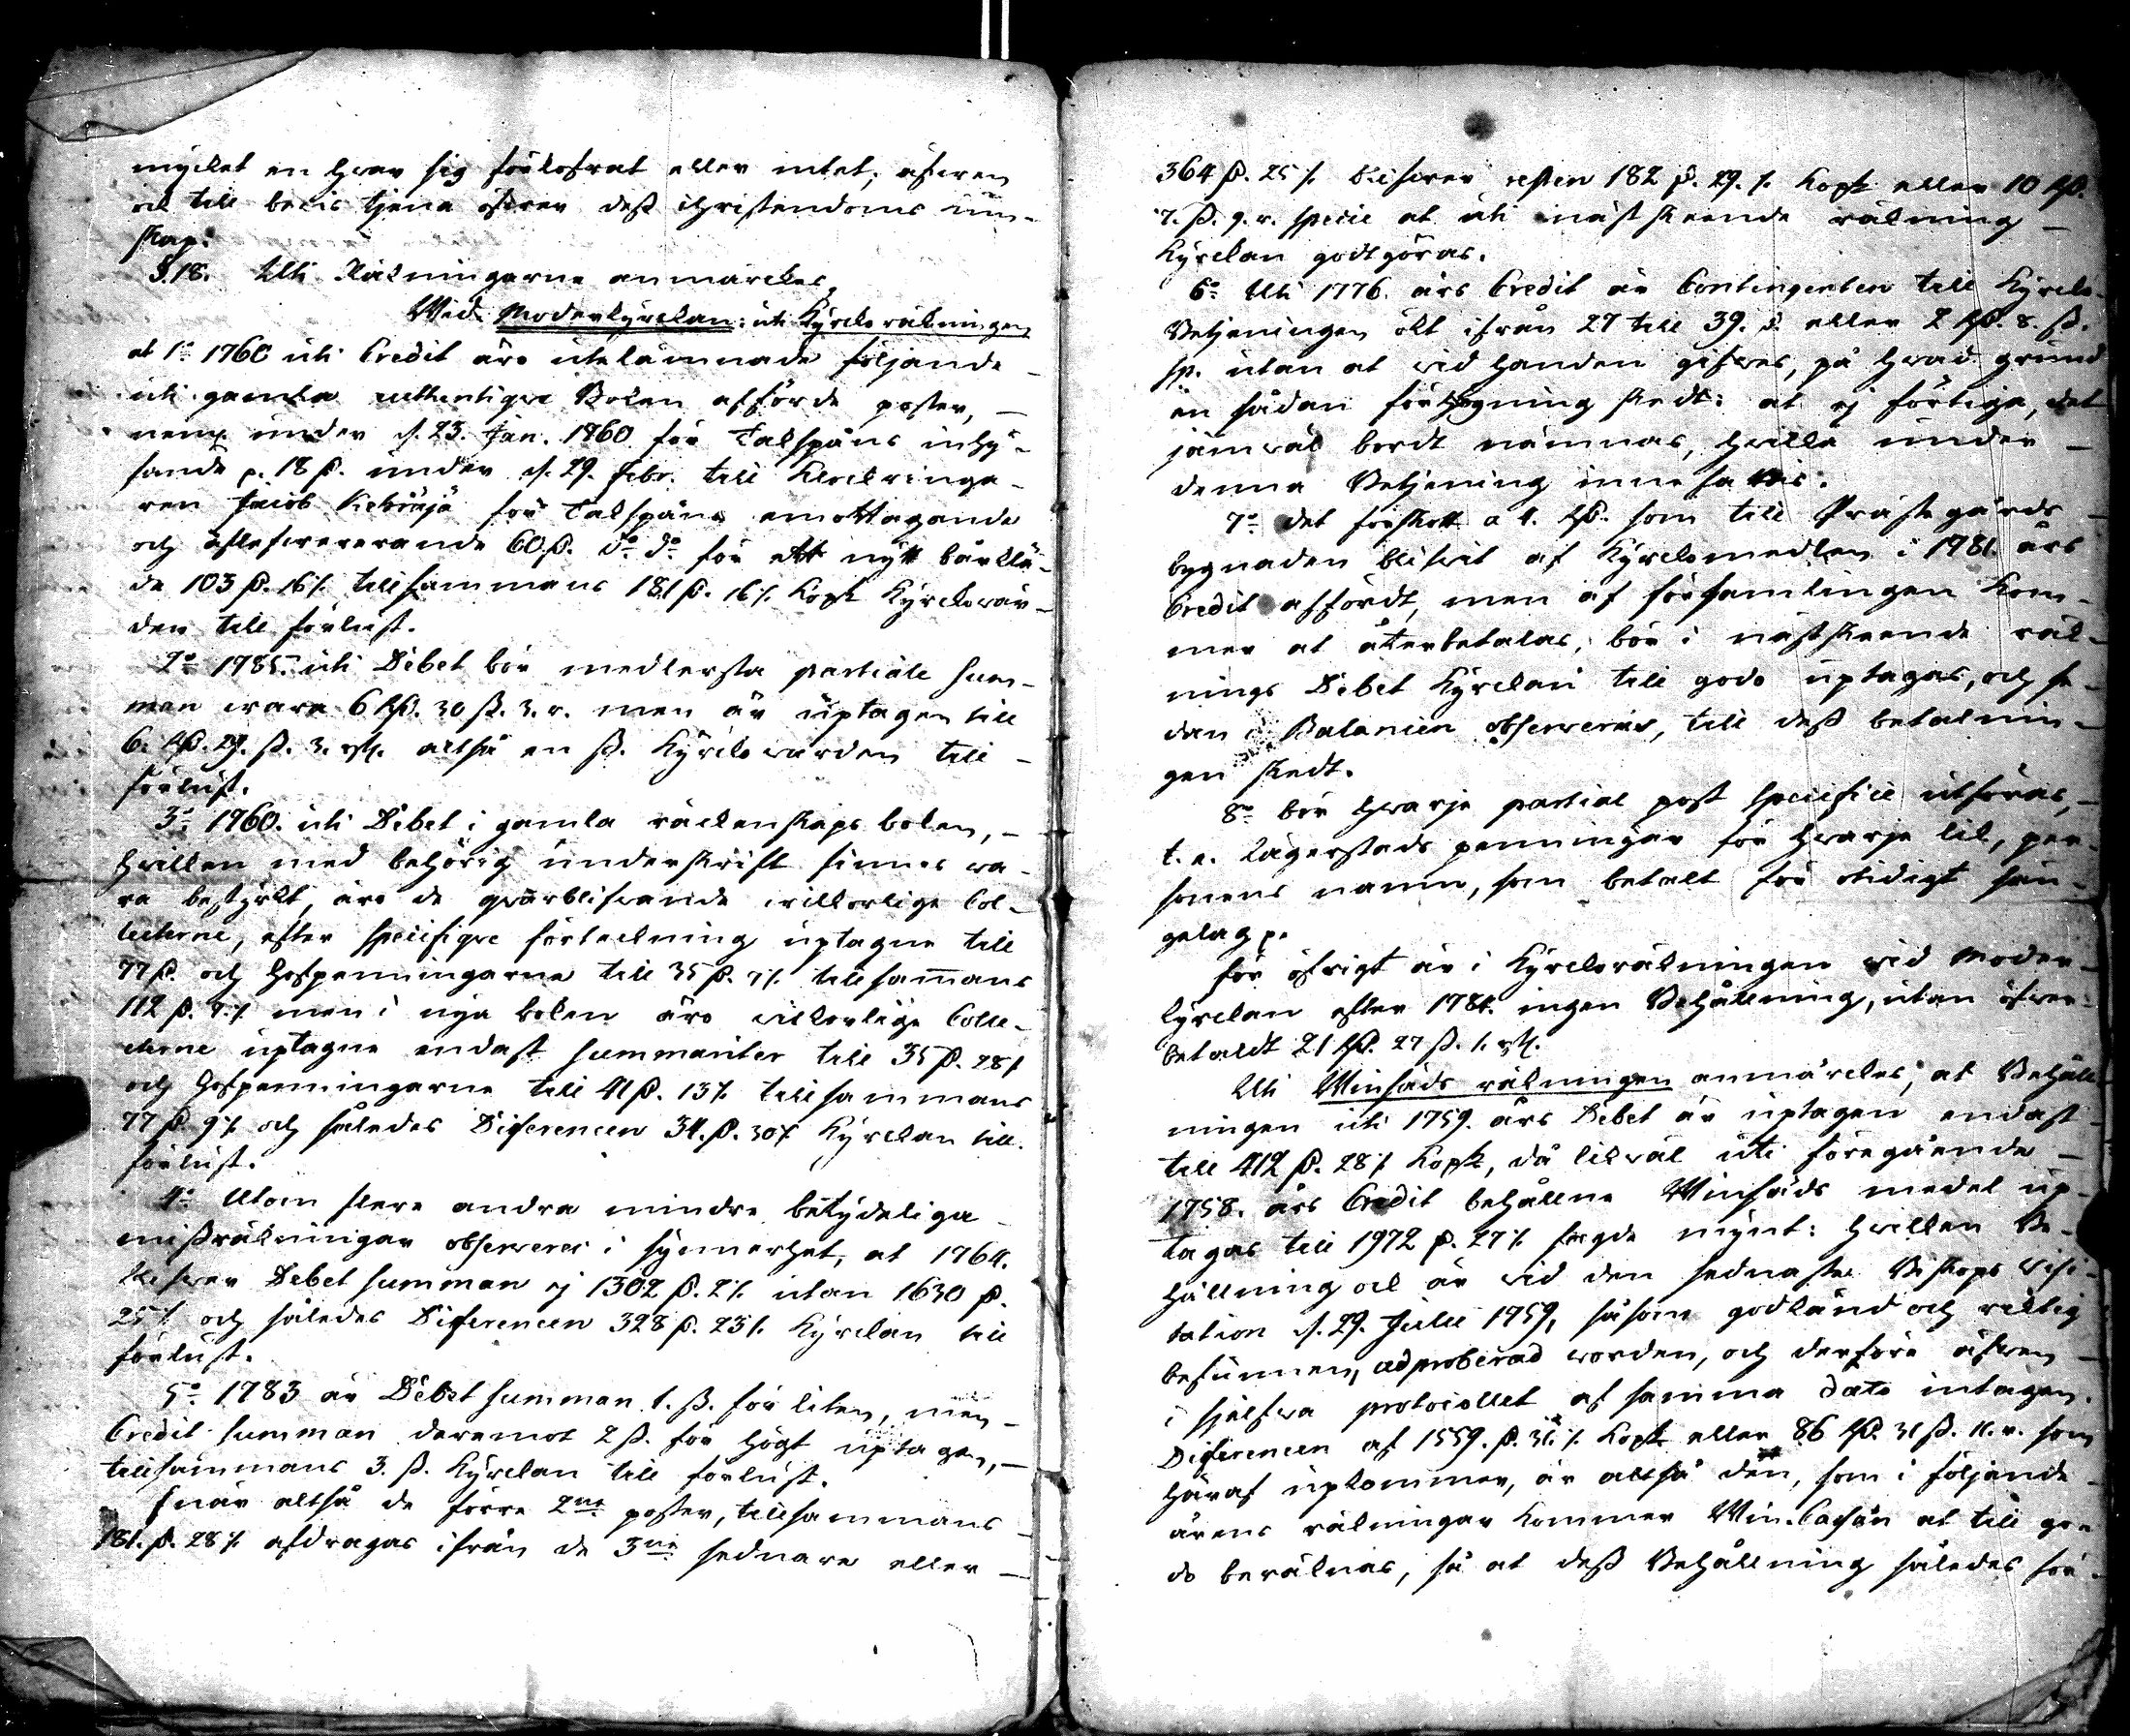 mycket en hwar sig förkofrat eller intet, äfwen
ock till bewis tjena öfwer dess christendoms kun-
skap.
§.18. Uti Räkningarne anmärckes,
Wid Moderkyrckan: uti Kyrcko räkningen
at 1:o 1760 uti Credit äro utelämnade följande
uti gamla authentique Boken afförde poster, —
neml. under d. 23. Jan. 1760 för Takspåns inhy-
sande p. 18 ß. under d. 29. Febr. till Klockringa-
ren Jacob för Takspåns emottagande
och aflefwererande 60 ß. d:o d:o för ett nytt bårklä-
de 103 ß. 16 /. tillsammans 181 ß. 16 /. Kopt Kyrckowär-
den till förlust.
2:o 1785. uti Debet bör medlersta partiale Sum-
man wara 6 Rß. 30 ß. 3. r. men är uptagen till
6. Rß. 29. ß. 3. rst. altså en ß. Kyrckowärden till —
förlust.
3:o 1760. uti Debet i gamla räckenskaps boken, —
hwilken med behörig underskrift finnes wa-
ra bestyrkt, äro de qwarblifwande wilkorlige Col-
lecterne, efter specifique förteckning uptagne till
77 ß. och Hofpenningarne till 35 ß. 7 /. tillsam̄ans
112 ß. 7 /. men i nya boken äro wilkorlige Colle-
cterne uptagne endast summariter till 35 ß. 28 /
och Hofpenningarne till 41 ß. 13 /. tillsammans
77 ß. 9 /. och således Differencen 34. ß. 30 /. Kyrckan till
förlust.
4:o Utom flere andra mindre betydeliga —
missräkningar observeres i synnerhet, at 1764.
blifwer Debet summan ej 1302 ß. 2 /. utan 1630 ß.
25 /. och således Differencen 328 ß. 23 /. Kyrckan till
förlust.
5:o 1783 är Debet summan 1. ß. för liten, men —
Credit summan deremot 2 ß. för högt uptagen, —
tillsammans 3. ß. Kyrckan till förlust.
När altså de förre 2:ne poster, tillsammans —
181. ß. 28 /. afdragas ifrån de 3:ne sednare eller —
364 ß. 25 /. blifwer resten 182 ß. 29. /. Kopt eller 10 Rß.
7. ß. 9. r. specie at uti nästskeende räkning —
Kyrckan godtgöras.
6:o Uti 1776. års Credit är Contingenten till Kyrcko-
Betjeningen ökt ifrån 27 till 39. d. eller 2 Rß. 8. ß.
sp. utan at wid handen gifwes, på hwad grund
en sådan förhögning skedt: at ej förtiga, det
jämwäl bordt nämnas, hwilka under —
denna Betjening innefattas.
7:o det förskott a 4. Rß. som till Prästegårds —
bygnaden blifwit af Kyrckomedlen i 1781. års
Credit affördt, men af församlingen kom-
mer at återbetalas, bör i nästskeende räk-
nings Debet Kyrckan till godo uptagas, och se-
dan i Balancen observeras, till dess betalnin-
gen skedt.
8:o bör hwarje partial post specifice utföras, —
t. e. lägerstads penningar för hwarje lik, per-
sonens namn, som betalt för otidigt sän-
gelag p.
för öfrigt är i Kyrckoräkningen wid Moder-
kyrckan efter 1784. ingen Behållning, utan öfwer-
betaldt 21 Rß. 27 ß. 1. rst.
Uti Winsäds räkningen anmärckes, at Behåll-
ningen uti 1759. års Debet är uptagen endast
till 412 ß. 28 /. Kopt, då likwäl uti föregående —
1758. års Credit behållne Winsäds medel up-
tagas till 1972 ß. 27 /. sagde mynt: hwilken Be-
hållning ock är wid den sednaste Biskops Visi-
tation d. 29. Julii 1759, såsom godkänd och richtig
befunnen, adproberad worden, och derföre äfwen —
i sjelfwa protocollet af samma dato intagen.
Differencen af 1559. ß. 31. /. Kopt eller 86 Rß. 31 ß. 11. r. som
häraf upkommer, är altså den, som i följande —
årens räkningar kommer Win. Cassan at till go-
do beräknas, så at dess Behållning således för-